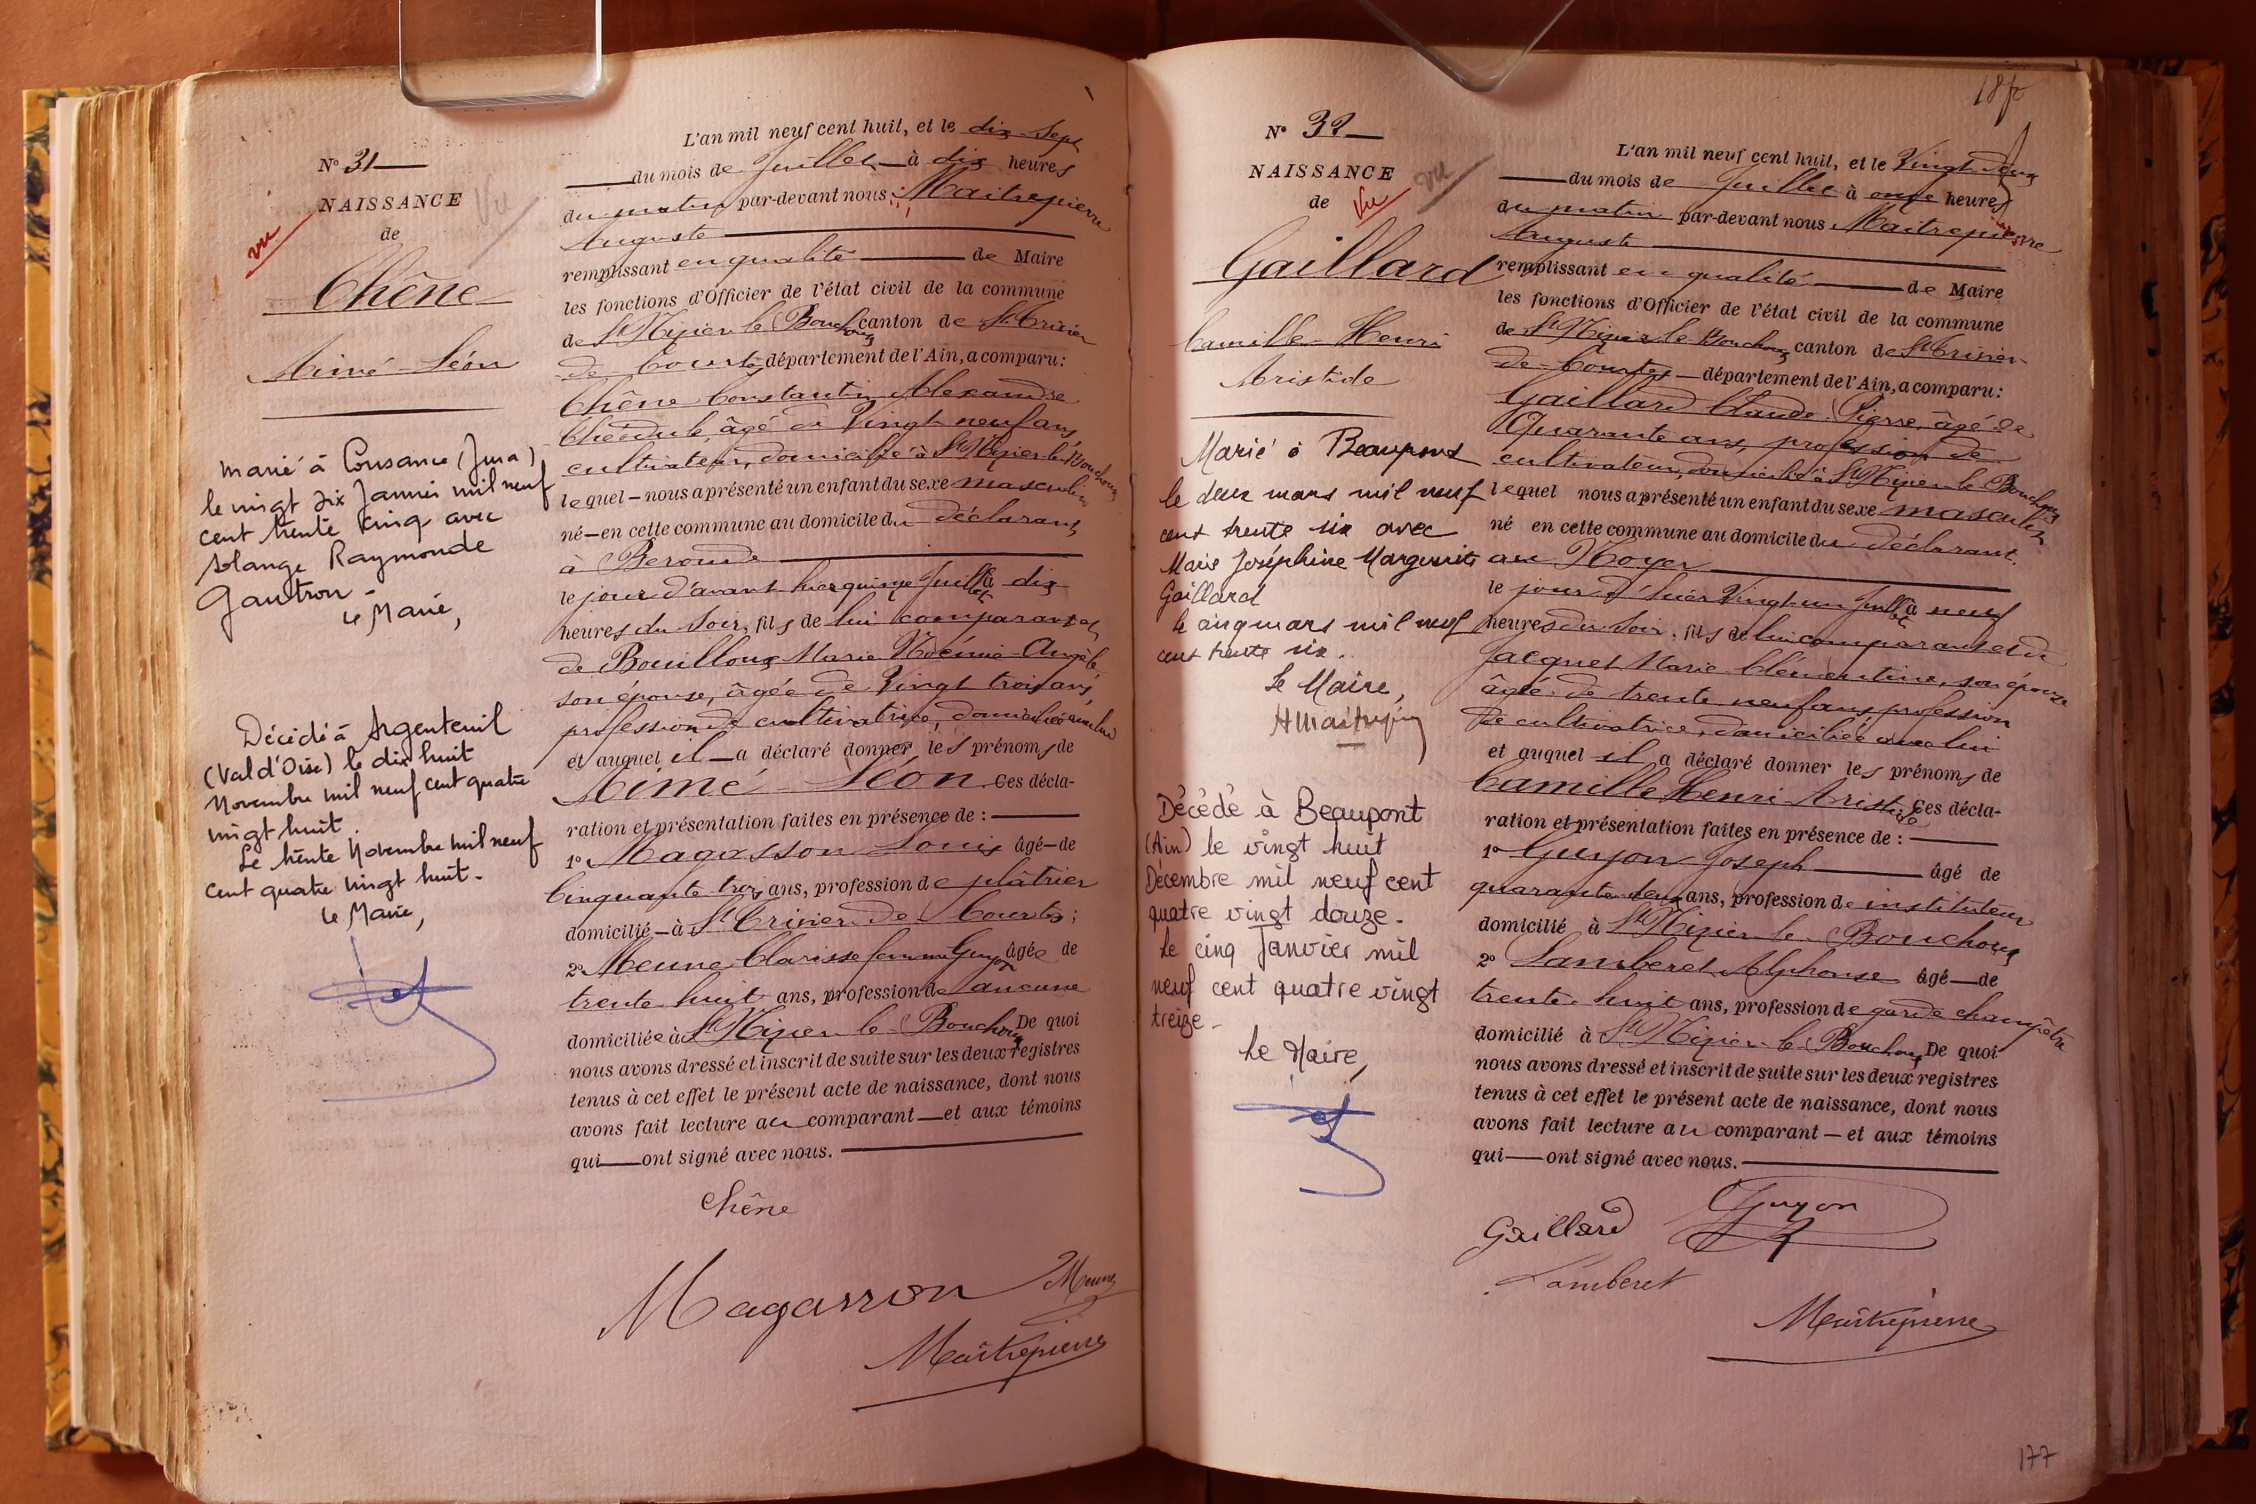 N° 31
NAISSANCE
de
vu
vu
Chêne
Aimé Léon
marié à Cousance (Jura)
le vingt six Janvier mil neuf
cent trente cinq avec
Solange Raymonde
Gautron.
Le Maire,
Décédé à Argenteuil
(Val d'Oise) le dix huit
Novembre mil neuf cent quatre
vingt huit.
Le trente Novembre mil neuf
cent quatre vingt huit.
Le Maire,
L'an mil neuf cent huit, et le dix-sept
du mois de Juillet à dix heures
du matin par-devant nous Maitrepierre
Auguste
remplissant en qualité de Maire
les fonctions d'Officier de l'état civil de la commune
de St Nizier le Bouchoux canton de St Trivier
de Courtes département de l'Ain, a comparu:
Chêne Constantin Alexandre
Théodule, âgé de Vingt neuf ans,
cultivateur, domicilié à St Nizier le Bouchoux
lequel nous a présenté un enfant du sexe masculin
né en cette commune au domicile du déclarant,
à Beroude
le jour d'avant hier quinze Juillet à dix
heures du soir, fils de lui comparant et
de Bouilloux Marie Noémie Angèle
son épouse, âgée de Vingt trois ans,
profession de cultivatrice, domiciliée avec lui
et auquel il a déclaré donner les prénoms de
Aimé Léon Ces décla-
ration et présentation faites en présence de :
1° Magasson Louis âgé de
Cinquante trois ans, profession de plâtrier
domicilié à St Trivier de Courtes;
2° Meune Clarisse femme Guyon âgée de
trente huit ans, profession de aucune
domiciliée à St Nizier le Bouchoux De quoi
nous avons dressé et inscrit de suite sur les deux registres
tenus à cet effet le présent acte de naissance, dont nous
avons fait lecture au comparant et aux témoins
qui ont signé avec nous.
Chêne
Magasson Meune
Maitrepierre
N° 32
NAISSANCE
de
vu
vu
Gaillard
Camille Henri
Aristide
Marié à Beaupont
le deux mars mil neuf
cent trente six avec
Marie Joséphine Marguerite
Gaillard
le cinq mars mil neuf
cent trente six.
Le Maire,
AMaitrepierre
Décédé à Beaupont
(Ain) le vingt huit
Décembre mil neuf cent
quatre vingt douze.
Le cinq Janvier mil
neuf cent quatre vingt
treize.
Le Maire,
L'an mil neuf cent huit, et le Vingt deux
du mois de Juillet à onze heures
du matin par-devant nous Maitrepierre
Auguste
remplissant en qualité de Maire
les fonctions d'Officier de l'état civil de la commune
de St Nizier le Bouchoux canton de St Trivier
de Courtes département de l'Ain, a comparu:
Gaillard Claude Pierre, âgé de
Quarante ans, profession de
cultivateur, domicilié à St Nizier le Bouchoux
lequel nous a présenté un enfant du sexe masculin
né en cette commune au domicile du déclarant.
au Noyer
le jour d'hier Vingt un Juillet à neuf
heures du soir, fils de lui comparant et de
Jacquet Marie Clémentine, son épouse
âgée de trente neuf ans profession
de cultivatrice, domiciliée avec lui
et auquel il a déclaré donner les prénoms de
Camille Henri Aristide Ces décla-
ration et présentation faites en présence de :
1° Guyon Joseph âgé de
quarante deux ans, profession de instituteur
domicilié à St Nizier le Bouchoux
2° Lamberet Alphonse âgé de
trente huit ans, profession de garde champêtre
domicilié à St Nizier le Bouchoux De quoi
nous avons dressé et inscrit de suite sur les deux registres
tenus à cet effet le présent acte de naissance, dont nous
avons fait lecture au comparant et aux témoins
qui ont signé avec nous.
Gaillard Guyon
Lamberet
Maitrepierre
177